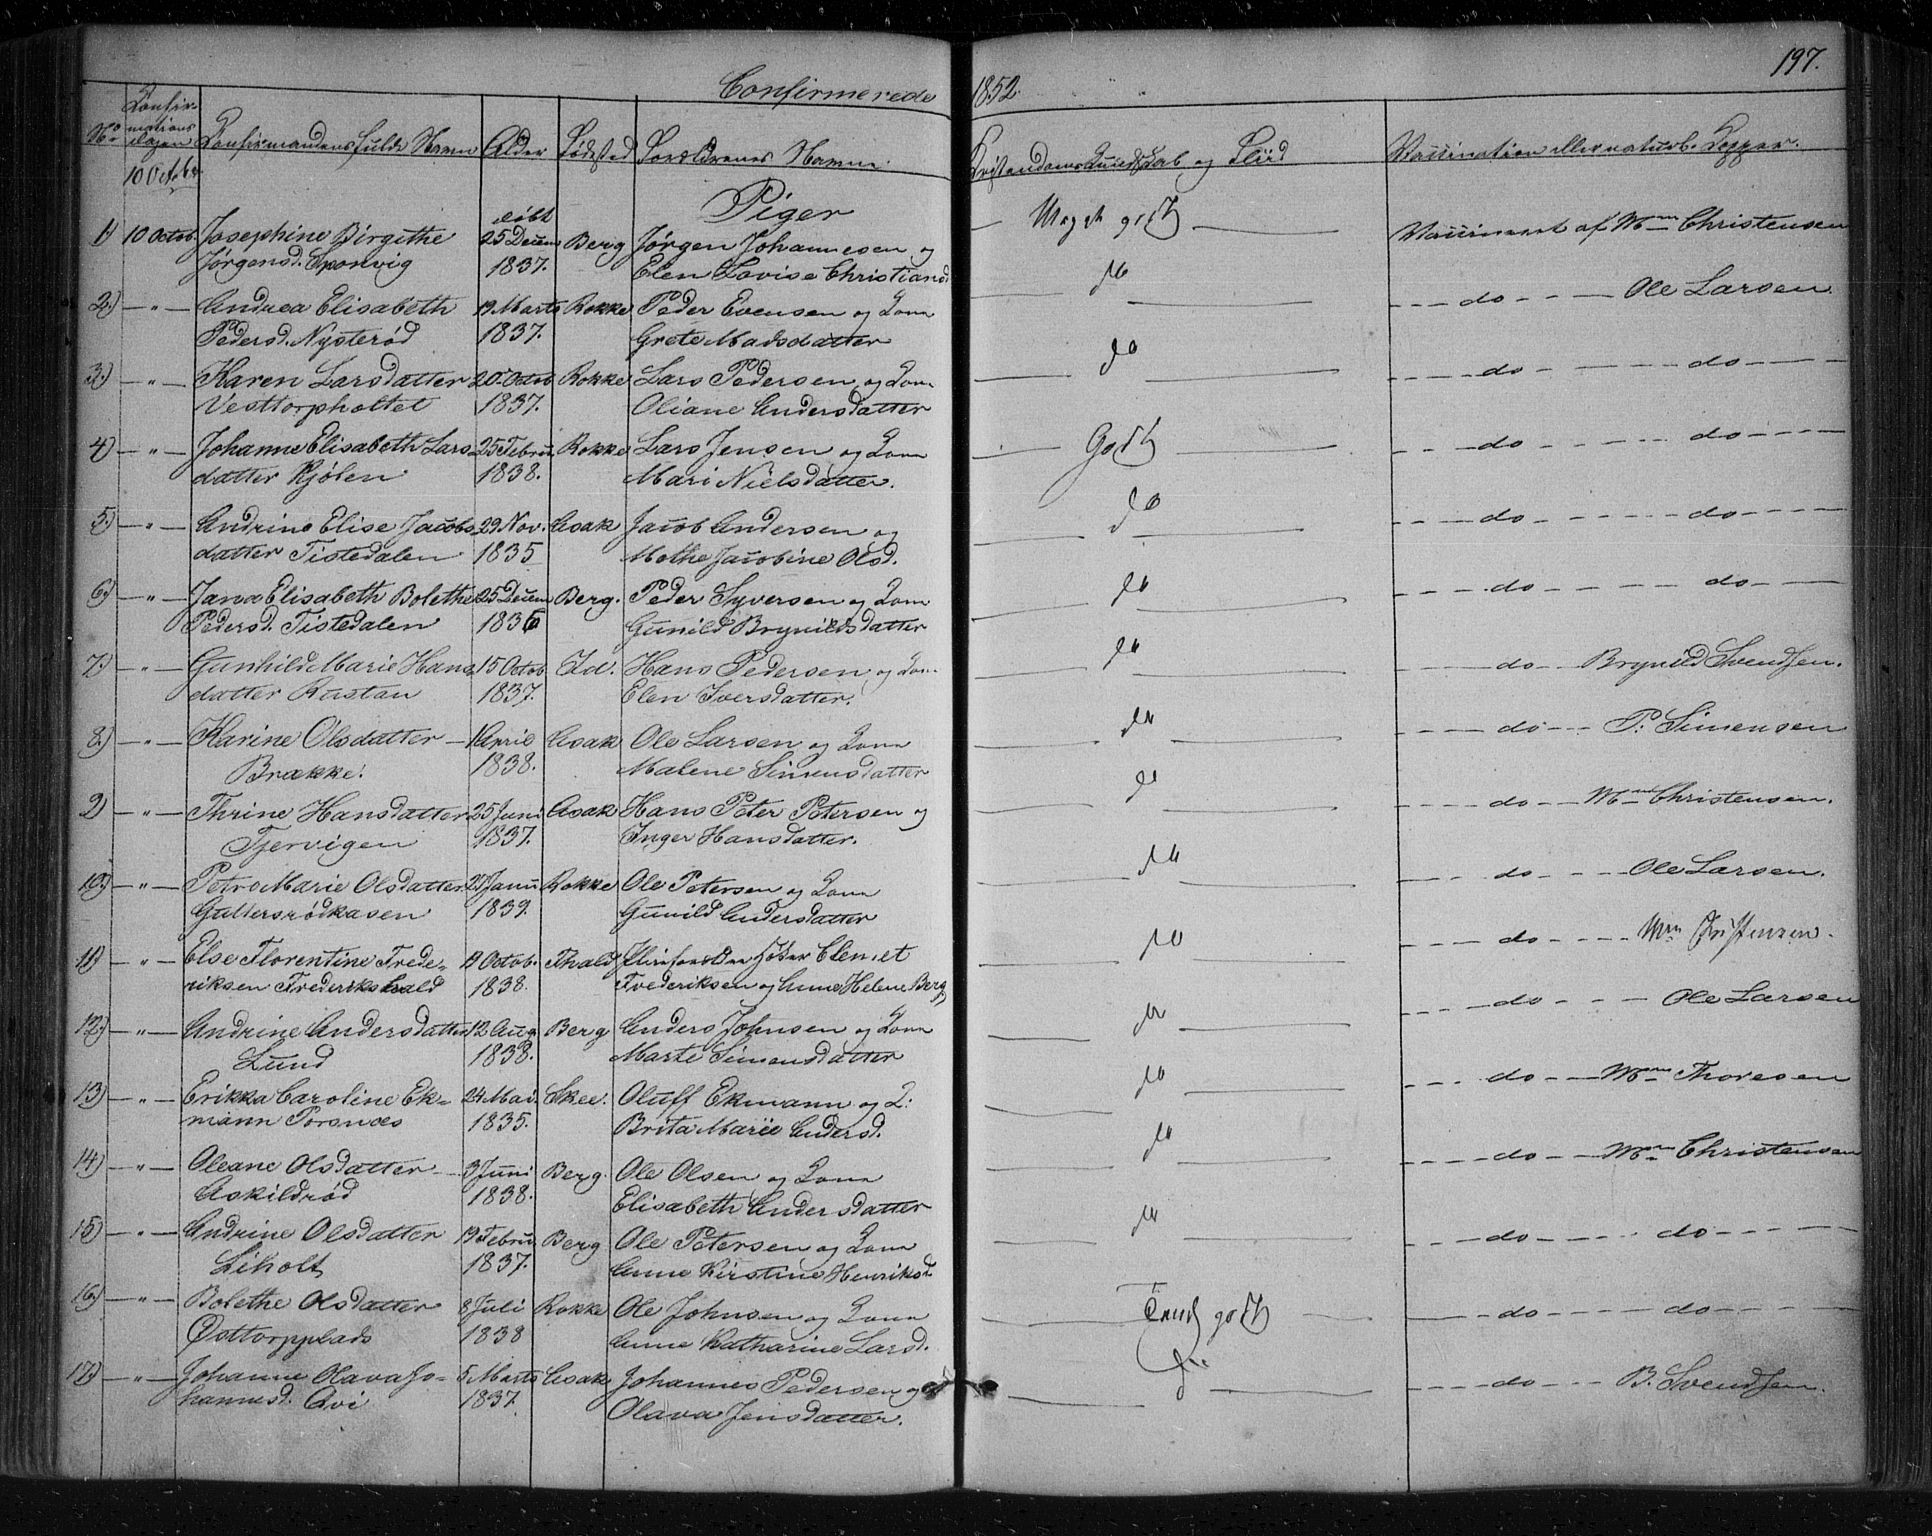 Confirmerede 1852. 197.
No Confirmations dagen Confirmandens fulde Navn Alder Fødested Forældrenes Navne. Kristendoms Kundskab og Fliid Vaccination eller naturl. Kopper.
10 Octobr
Piger
døbt
1) 10 Octob. Josephine Birgithe 25 Decem Berg Jørgen Johannesen og Meget godt Vaccineret af Mme Christensen
Jørgensd. Sponvig 1837. Elen Lovise Christiansd
2.) — " — Andrea Elisabeth 19 Marts Rokke Peder Evensen og Kone do do Ole Larsen.
Pedersd. Nysterød 1837. Grete Madsdatter
3.) — " — Karen Larsdatter 20 Octob Rokke Lars Pedersen og Kone do do do
Vesttorpholtet 1837. Oliane Andersdatter
4) — " — Johanne Elisabeth Lars 25 Febru Rokke Lars Jensen og Kone Godt do do
datter Kjølen 1838. Mari Nielsdatter.
5.) — " — Andrine Elise Jacobs 29 Nov. Asak Jacob Andersen og do do do
datter Tistedalen 1835 Mathe Jacobine Olsd.
6.) — " — Jana Elisabeth Bolethe 25 Decem Berg. Peder Syversen og Kone do do do
Pedersd. Tistedalen 1836 Gunild Brynildsdatter
7.) — " — Gunhild Marie Hans 15 Octob Id. Hans Pedersen og Kone do do Brynild Svendsen.
datter Rustan 1837. Elen Iversdatter.
8.) — " — Karine Olsdatter 1 April Asak Ole Larsen og Kone do do P. Simensen
Brække. 1838. Malene Simensdatter
9) — " — Thrine Hansdatter 25 Juni Asak Hans Peter Petersen og do do Mme Christensen.
Tjervigen 1837. Inger Hansdatter.
10.) — " — Petro Marie Olsdatter Janu Rokke Ole Petersen og Kone do do Ole Larsen.
Guttersrødkasen 1839. Gunild Andersdatter
11) — " — Else Florentine Frede- Octob. Fhald Clemet do do Mme Christensen.
riksen Frederikshald 1838. Frederiksen og Anne Helene Berg
12.) — " — Andrine Andersdatter 12 Aug Berg Anders Johnsen og Kone do do Ole Larsen
Lund 1838. Marte Simensdatter
13.) — " — Erikka Caroline Ek- 24 Mai. Skee. Oluff Ekmann og K: do do Mme Thoresen
mann Porsnæs 1835. Brita Marie Andersd.
14) — " — Oleane Olsdatter 3 Juni Berg. Ole Olsen og Kone do do Mme Christensen
Askildrød 1838. Elisabeth Andersdatter
15) — " — Andrine Olsdatter 19 Febru Berg Ole Petersen og Kone do do do
Liholt 1837. Anne Kirstine Henriksd
16.) — " — Bolethe Olsdatter 8 Juli Rokke Ole Johnsen og Kone Teml godt do do
Østtorpplads 1838 Anne Katharine Larsd.
17.) — " — Johanne Olava Jo- 5 Marts Asak Johannes Pedersen og do B. Svendsen.
hannesd. Qvi 1837. Olava Jensdatter.